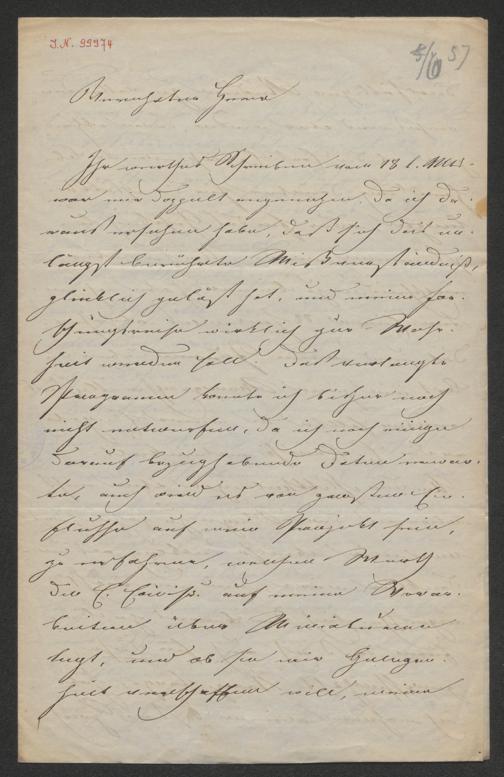 I.N. 99974
5/6 57
Verehrter Herr
Ihr werthes Schreiben vom 18 l. Mts.
war mir doppelt angenehm, da ich da-
raus ersehen habe, daß sich das un-
längst berührte Mißverständniß,
glücklich gelöst hat, und meine For-
schungsreise wirklich zur Wahr-
heit werden soll. Das verlangte
Programm konnte ich bisher noch
nicht entwerfen, da ich noch einige
darauf bezughabende Daten erwar-
te, auch wird es von grossem Ein-
flusse auf mein Projekt sein,
zu erfahren, welchen Werth
die C. Comiss. auf meine Vorar-
beiten über Miniaturen
legt, und ob sie mir Gelegen-
heit verschaffen will, meine